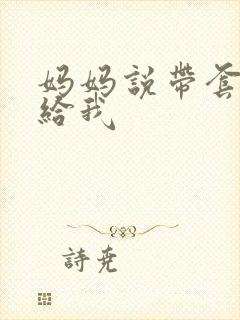 妈妈説帶套
給我
詩尭